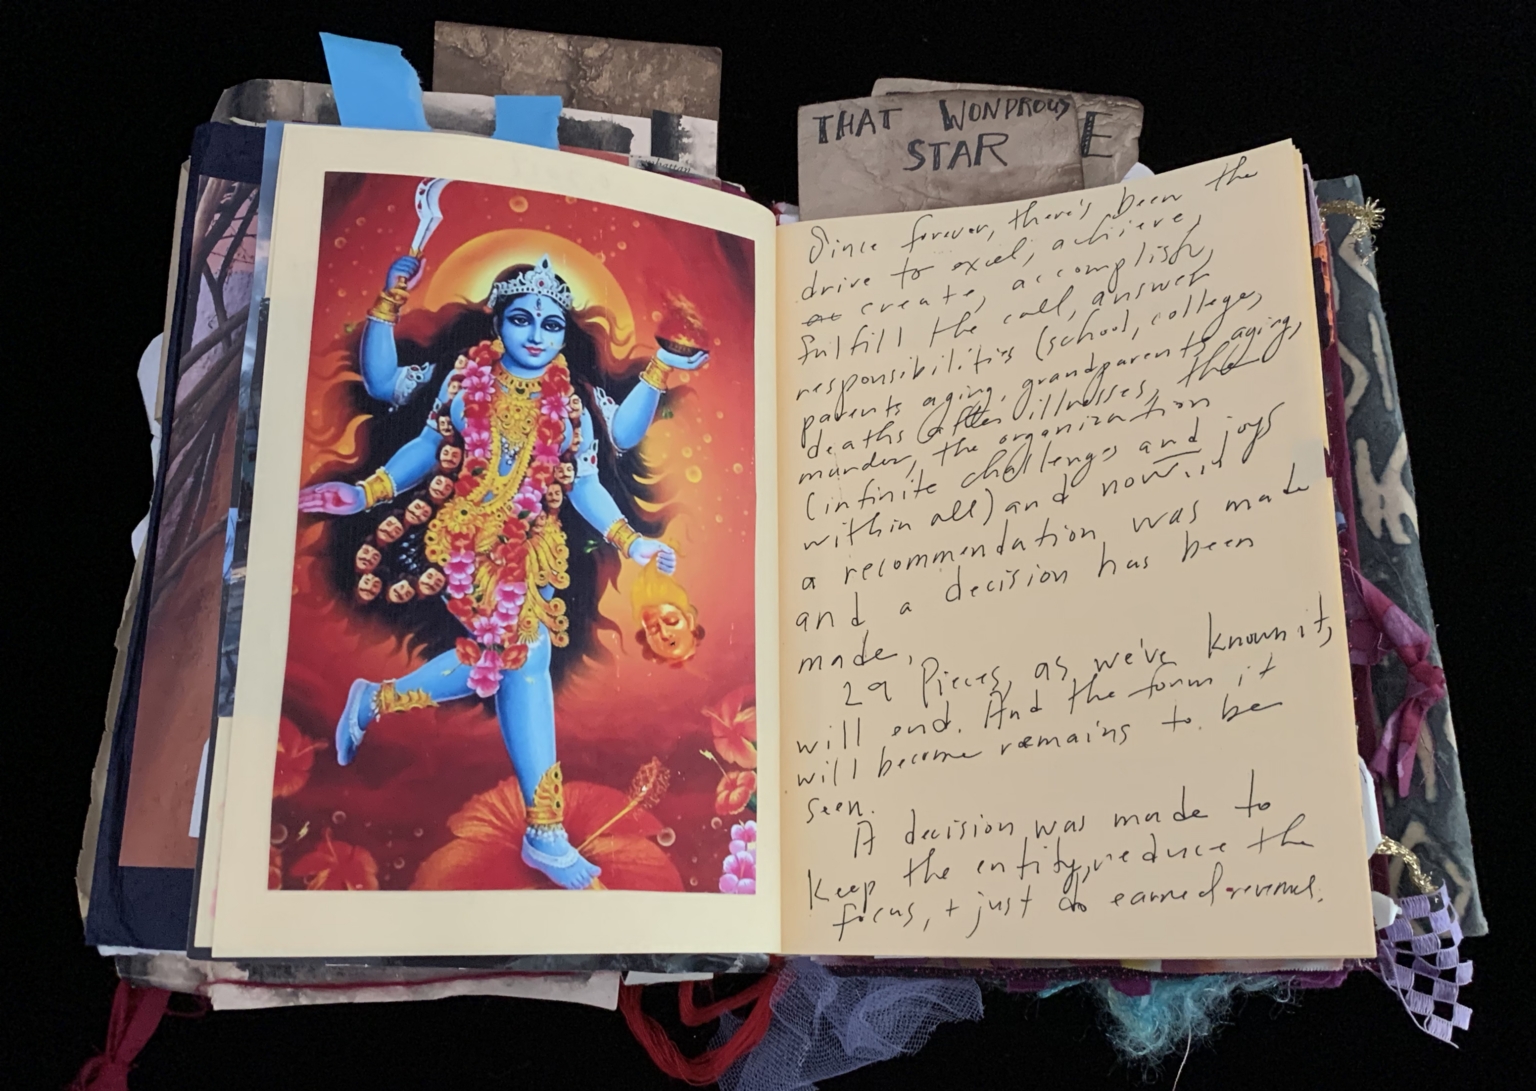 THAT WONDROUS
STAR
E
Since forever, there's been the
drive to excel, achieve,
create, accomplish,
fulfill the call, answer
responsibilities (school, college,
parents aging, grandparents aging,
deaths after illnesses, the
murder, the organization
(infinite challenges and joys
within all) and now...
a recommendation was made
and a decision has been
made.
29 Pieces, as we've known it,
will end. And the form it
will become remains to be
seen.
A decision was made to
keep the entity, reduce the
focus, + just do earned revenue.